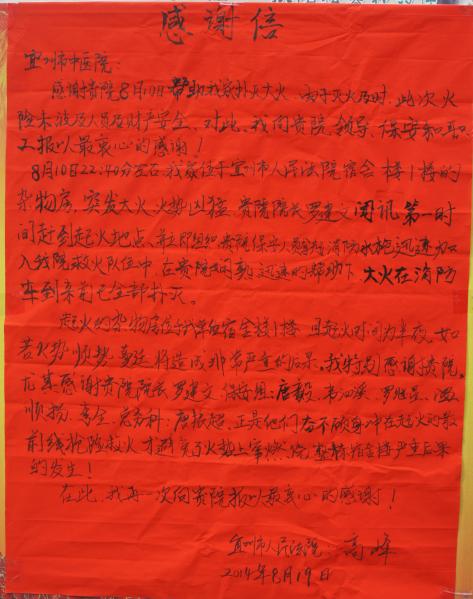 感谢信
宜州市中医院：
感谢贵院8月10日帮助我家扑灭大火，由于灭火及时，此次火
险未波及人员及财产安全，对此，我向贵院领导、保安和职
工报以最衷心的感谢！
8月10日22:40分左右，我家位于宜州市人民法院宿舍楼1楼的
杂物房，突发大火，火势凶猛，贵院院长罗建文闻讯第一时
间赶到起火地点，并立即组织贵院保安人员 消防水炮迅速加
入我院救火队伍中，在贵院 迅速的帮助下大火在消防
车到来前已全部扑灭。
起火的杂物房位于我单位宿舍楼1楼，且起火时间为半夜，如
若火势顺势蔓延将造成非常严重的后果，我特别感谢贵院，
尤其感谢贵院院长罗建文，保安组：唐毅、韦 、罗 、温
顺 、 ，总务科：唐振超，正是他们奋不顾身冲在起火的最
前线抢险救火才避免了火势上窜燃烧整栋宿舍楼严重后果
的发生！
在此，我再一次向贵院报以最衷心的感谢！
宜州市人民法院：高峰
2014年8月19日